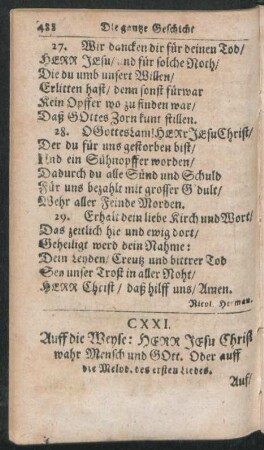 488 Die gantze Geschicht
27. Wir dancken dir für deinen Tod/
HERR JEsu/ und für solche Noth/
Die du umb unsert Willen/
Erlitten hast/ denn sonst fürwar
Kein Opffer wo zu finden war/
Daß GOttes Zorn kunt stillen.
28. O GottesLam! HErr JEsu Christ/
Der du für uns gestorben bist/
Und ein Sühnopffer worden/
Dadurch du alle Sünd und Schuld
Für uns bezahlt mit grosser Gdult/
Wehr aller Feinde Morden.
29. Erhalt dein liebe Kirch und Wort/
Das zeitlich hie und ewig dort/
Geheiligt werd dein Nahme:
Dein Leyden/ Creutz und bittrer Tod
Sey unser Trost in aller Noht/
HERR Christ/ daß hilff uns/ Amen.
Nicol. Herman.
CXXI.
Auff die Weyse: HERR JEsu Christ
wahr Mensch und GOtt. Oder auff
die Melod. des ersten Liedes.
Auf/